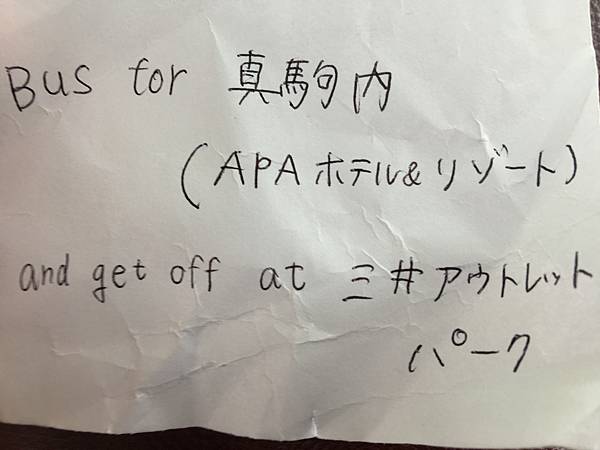 Bus for 真駒内
(APAホテル&リゾート)
and get off at 三井アウトレット
パーク